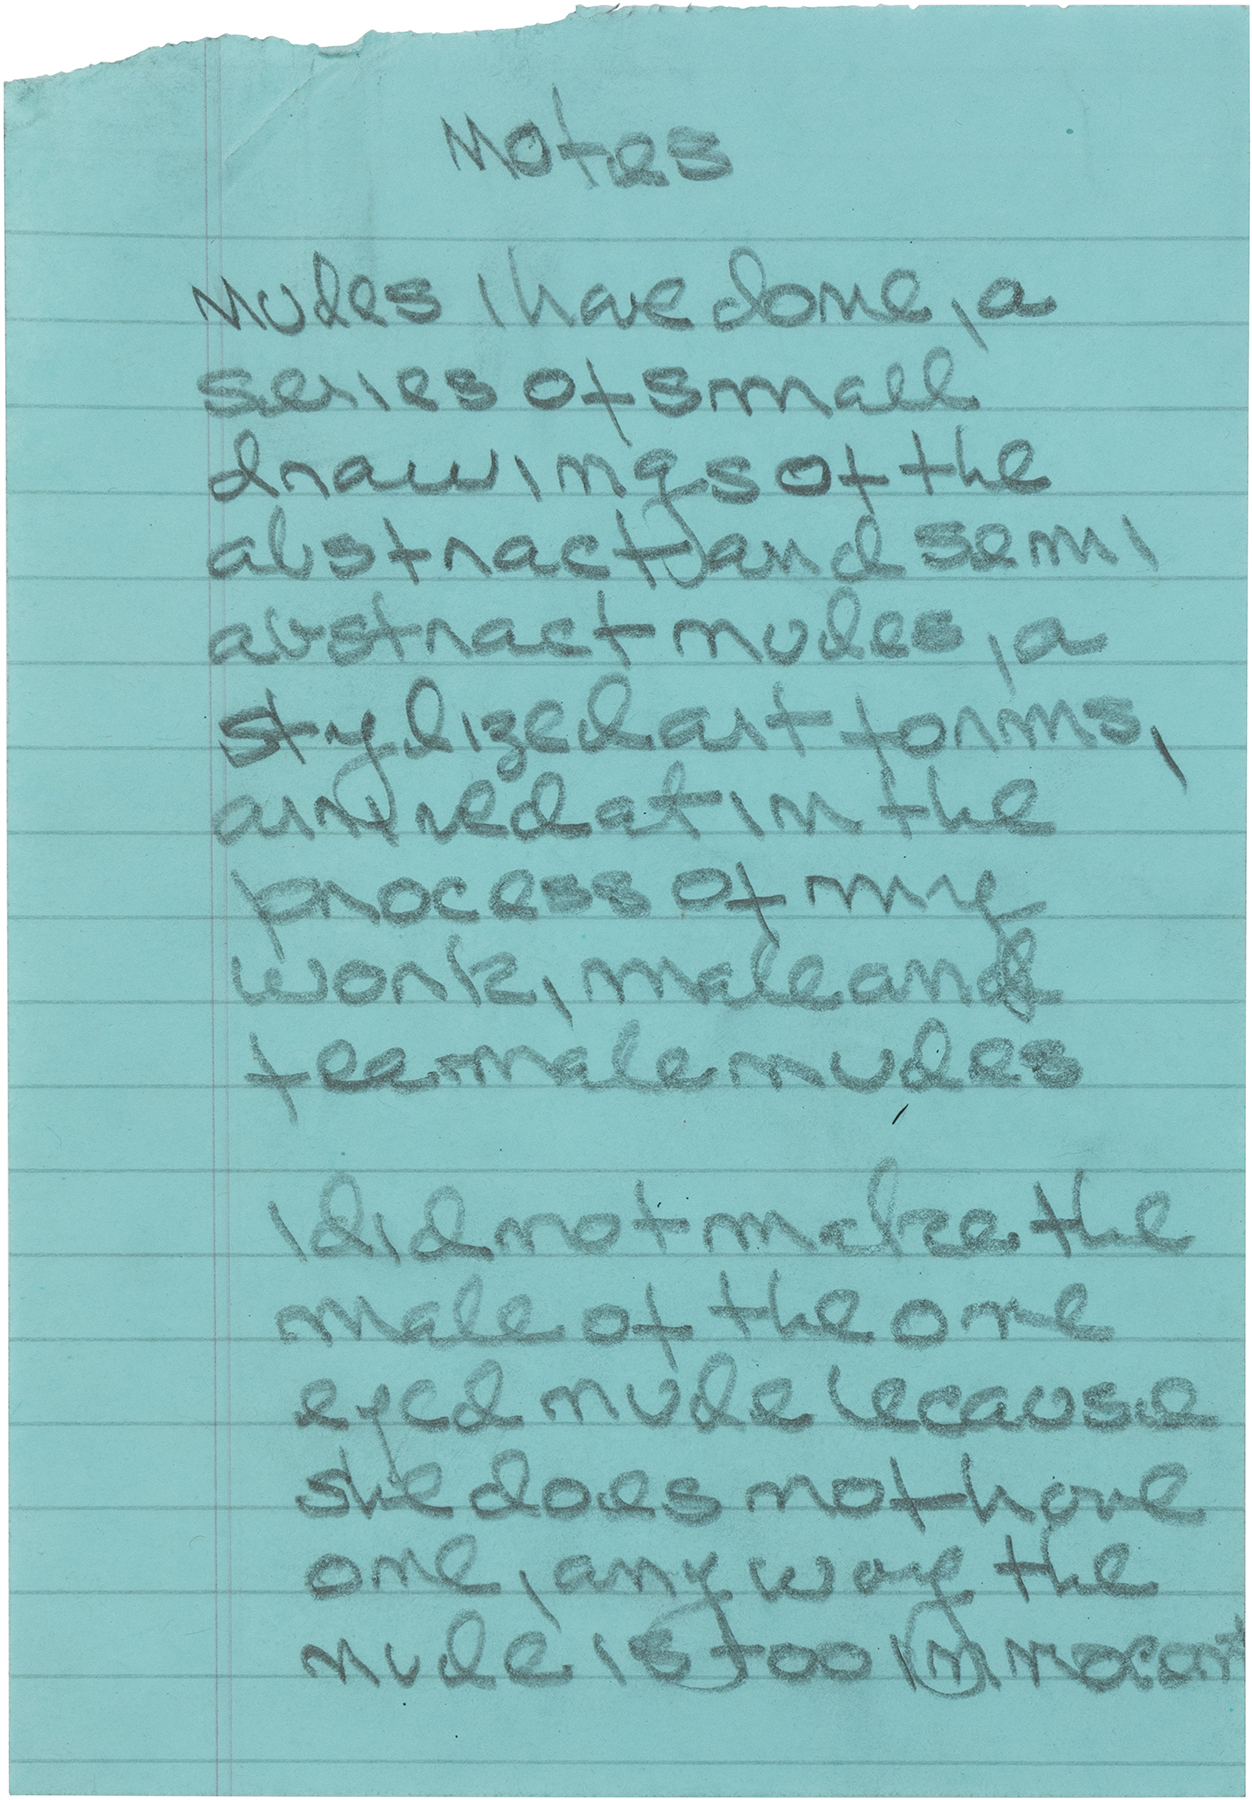 Notes
Nudes I have done, a
series of small
drawings of the
abstract and semi
abstract nudes, a
stylized art forms,
arrived at in the
process of my
work, male and
feemale nudes
I did not make the
male of the one
eyed nude because
she does not have
one, any way the
nude is too innocent